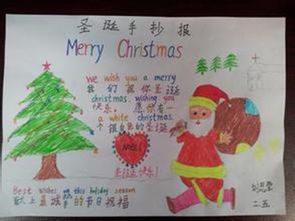 圣诞手抄报
Merry Christmas
We wish you a merry
我们祝你圣诞
christmas, wishing you
快乐, 愿你有一
a white christmas.
个银白的圣诞
圣诞快乐!
Best wishes on this holiday season
献上最诚挚的节日祝福
二.五